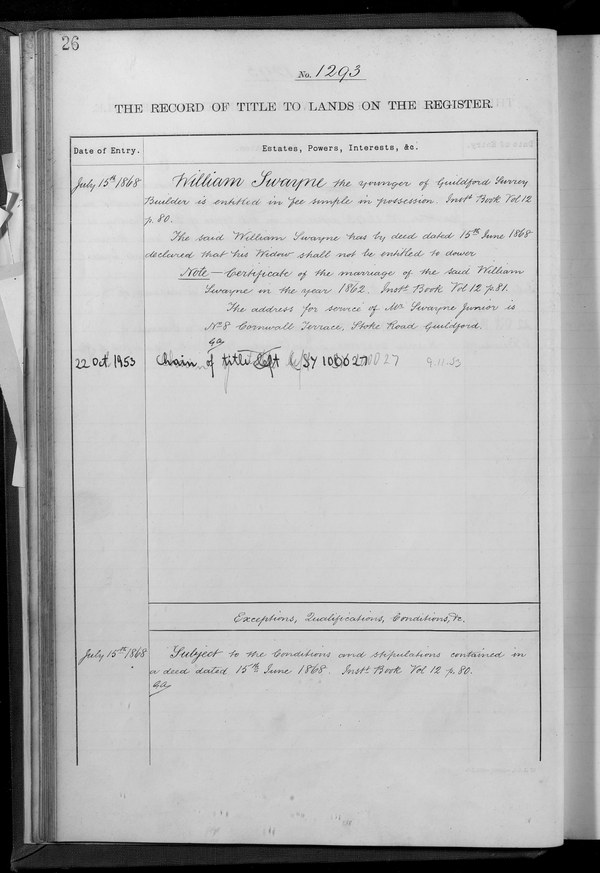 26
No. 1293
THE RECORD OF TITLE TO LANDS ON THE REGISTER.
Date of Entry. Estates, Powers, Interests, &c.
July 15th 1868 William Swayne the younger of Guildford Surrey
Builder is entitled in fee simple in possession. Instt Book Vol 12
p. 80.
The said William Swayne has by deed dated 15th June 1868
declared that his Widow shall not be entitled to dower
Note — Certificate of the marriage of the said William
Swayne in the year 1862. Instt Book Vol 12 p. 81.
The address for service of Mr Swayne Junior is
No 8 Cornwall Terrace, Stoke Road Guildford.
22 Oct. 1953 Chain of title SY 100027 9.11.53
Exceptions, Qualifications, Conditions, &c.
July 15th 1868 Subject to the Conditions and stipulations contained in
a deed dated 15th June 1868. Instt Book Vol 12 p. 80.